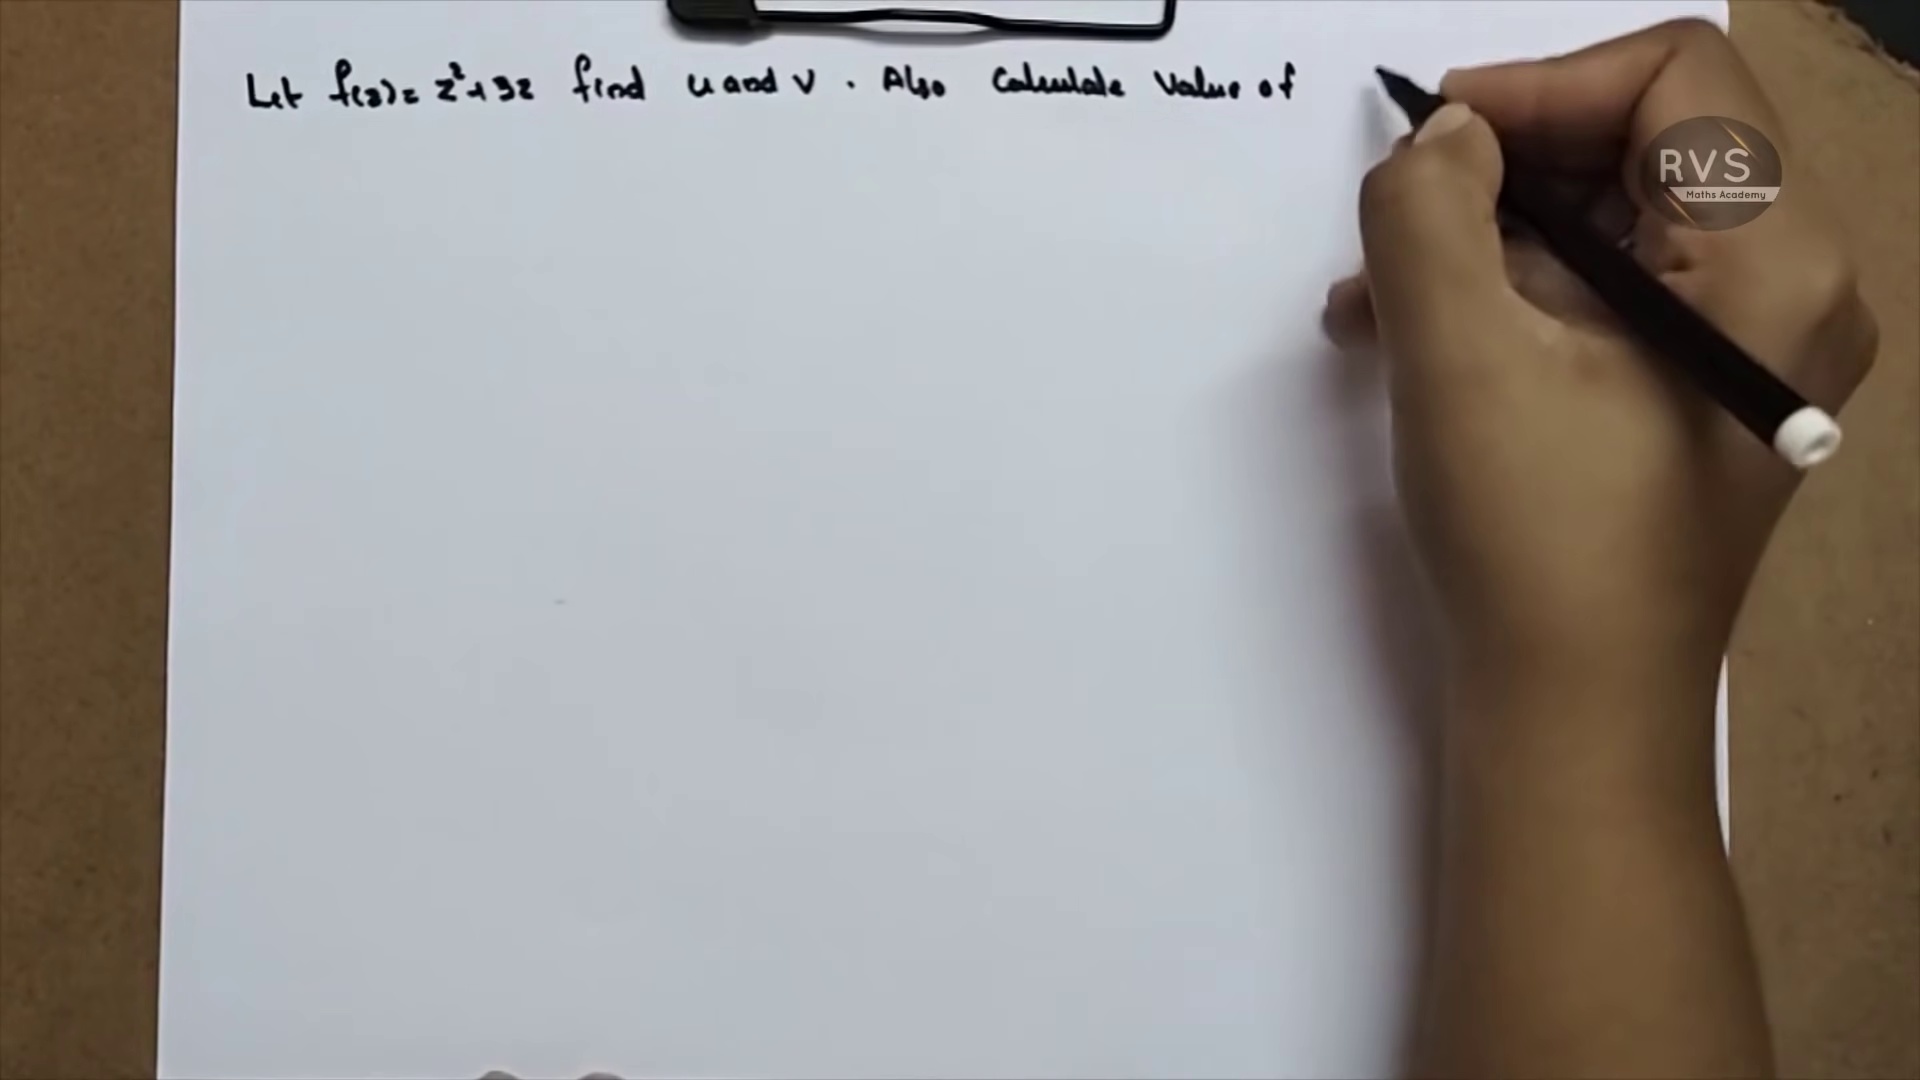 Let f(z) = z² + 3z find u and v. Also Calculate Value of
RVS
Maths Academy